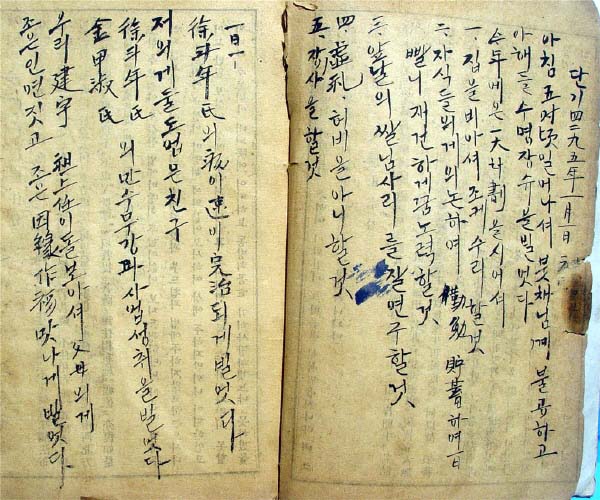 단기 四二九五年 一月 一日
아침 五時頃 일어나셔 붓채님게 불공하고
아해들 수명장수을 빌엇다
今年에은 一大計劃을 시어셔
一. 집을 비아셔 조케 수리 할것
二. 자식들의게 의논하여 貯蓄하며 一日
빨니 재건하게끔 노력할것
三. 앞날의 쌀님사리를 잘 연구할것
四. 虛礼, 허비을 아니할것
五. 장사을 할것
一日
徐斗年氏의 病이 速히 完治되게 빌엇다
저의게 둘도 업은 친구
徐斗年氏
金甲淑氏 의 만수무강과 사업성취을 빌엇다
우리 建宇 祖上任이 돌보아셔 父母의게
조은 인연 짓고 조은 因緣作福 맛나게 빌엇다